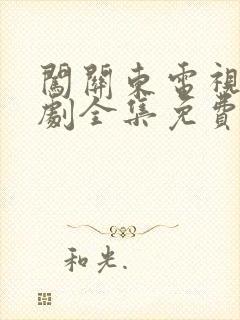 闖關東電視
劇全集免費
和光.